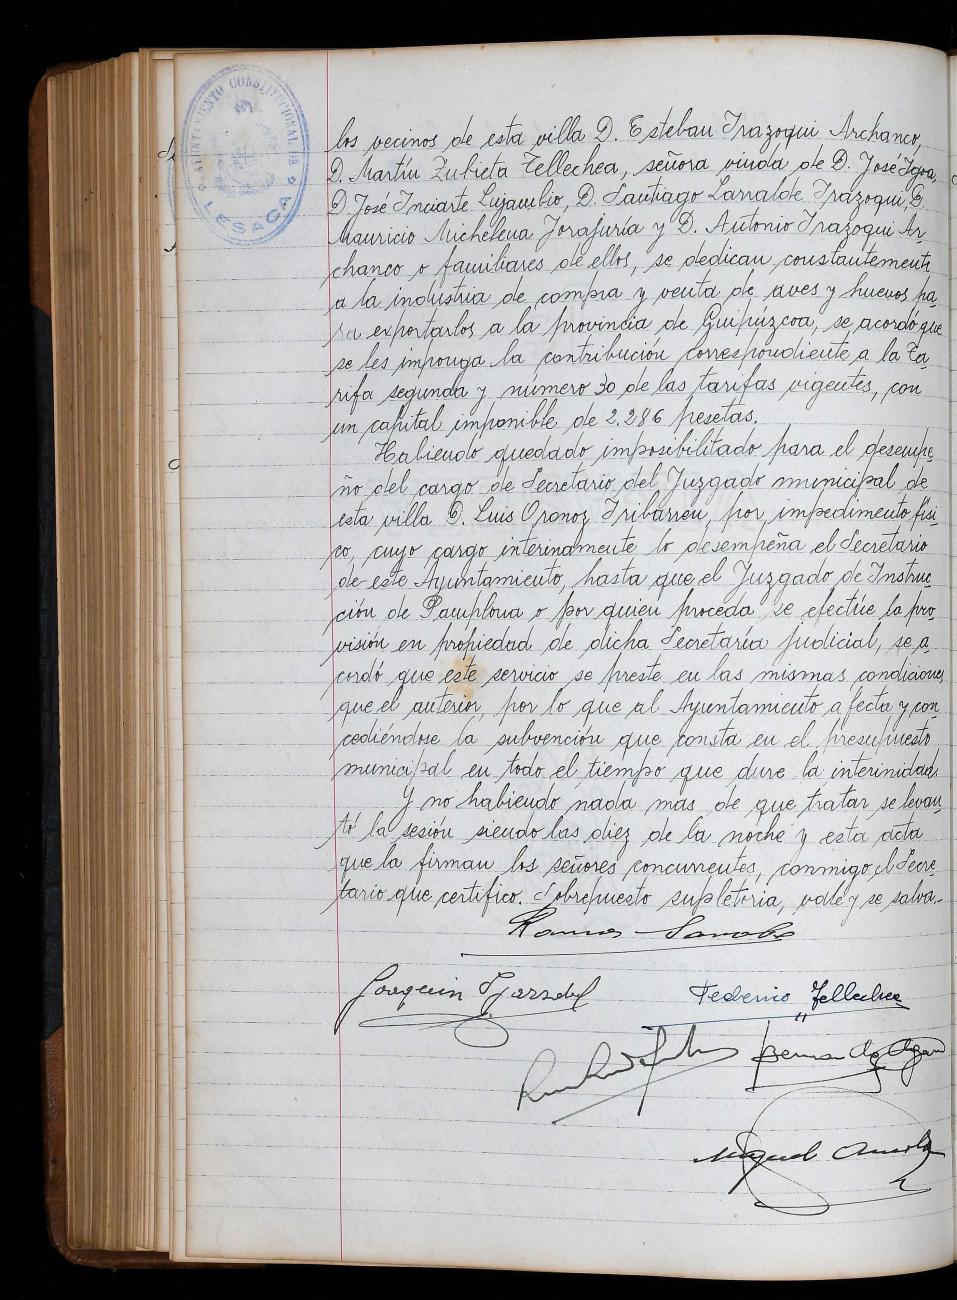 AYUNTAMIENTO CONSTITUCIONAL DE
LESACA
los vecinos de esta villa D. Esteban Irazoqui Archanco,
D. Martín Zubieta Tellechea, señora viuda de D. José Igoa,
D. José Iniarte Lujambio, D. Santiago Larralde Irazoqui, D.
Mauricio Michelena Jorajuría y D. Antonio Irazoqui Ar-
chanco o familiares de ellos, se dedican constantemente
a la industria de compra y venta de aves y huevos pa-
ra exportarlos a la provincia de Guipúzcoa, se acordó que
se les imponga la contribución correspondiente a la Ta-
rifa segunda y número 30 de las tarifas vigentes, con
un capital imponible de 2.286 pesetas.
Habiendo quedado imposibilitado para el desempe-
ño del cargo de Secretario del Juzgado municipal de
esta villa D. Luis Oronoz Iribarren, por impedimento físi-
co, cuyo cargo interinamente lo desempeña el Secretario
de este Ayuntamiento, hasta que el Juzgado de Instruc-
ción de Pamplona o por quien proceda se efectúe la pro-
visión en propiedad de dicha Secretaría judicial, se a-
cordó que este servicio se preste en las mismas condiciones
que el anterior, por lo que al Ayuntamiento afecta y con-
cediéndose la subvención que consta en el presupuesto
municipal en todo el tiempo que dure la interinidad.
Y no habiendo nada mas de que tratar se levan-
tó la sesión siendo las diez de la noche y esta acta
que la firman los señores concurrentes, conmigo el Secre-
tario que certifico. Sobrepuesto supletoria, vale y se salva.-
Ramon
Joaquin
Federico Tellechea
Miguel